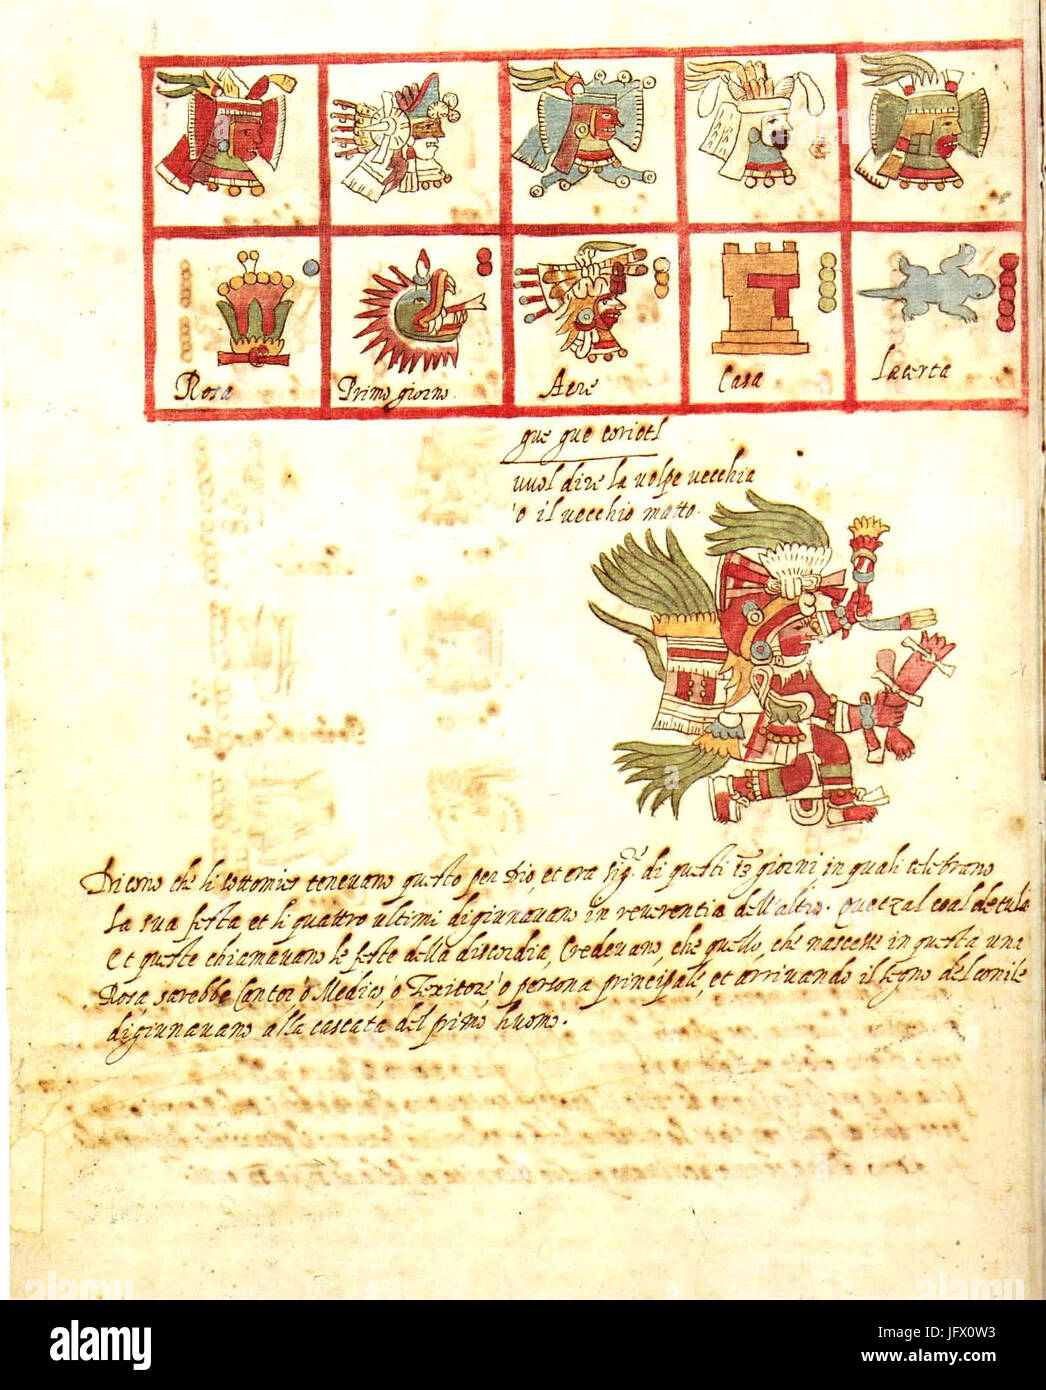 Rosa
Primo giorno.
Aere
Casa
Lacerta
gue gue coriotl
vuol dire la volpe vecchia
ò il vecchio matto.
Dicono che li ottomies tenevano questo per dio, et era sig.e di questi 13 giorni in quali celebrano
la sua festa et li quattro ultimi digiunavano in reverentia dell'altro. quetzal coal de tula
et queste chiamavano le feste della discordia, Credevano, che quello, che nascesse in questa una
Rosa, sarebbe Cantor, ò Medico, ò Texitore, ò persona principale, et arrivando il segno del
digiunavano alla cascata del primo huomo.
alamy
Image ID: JFX0W3
www.alamy.com